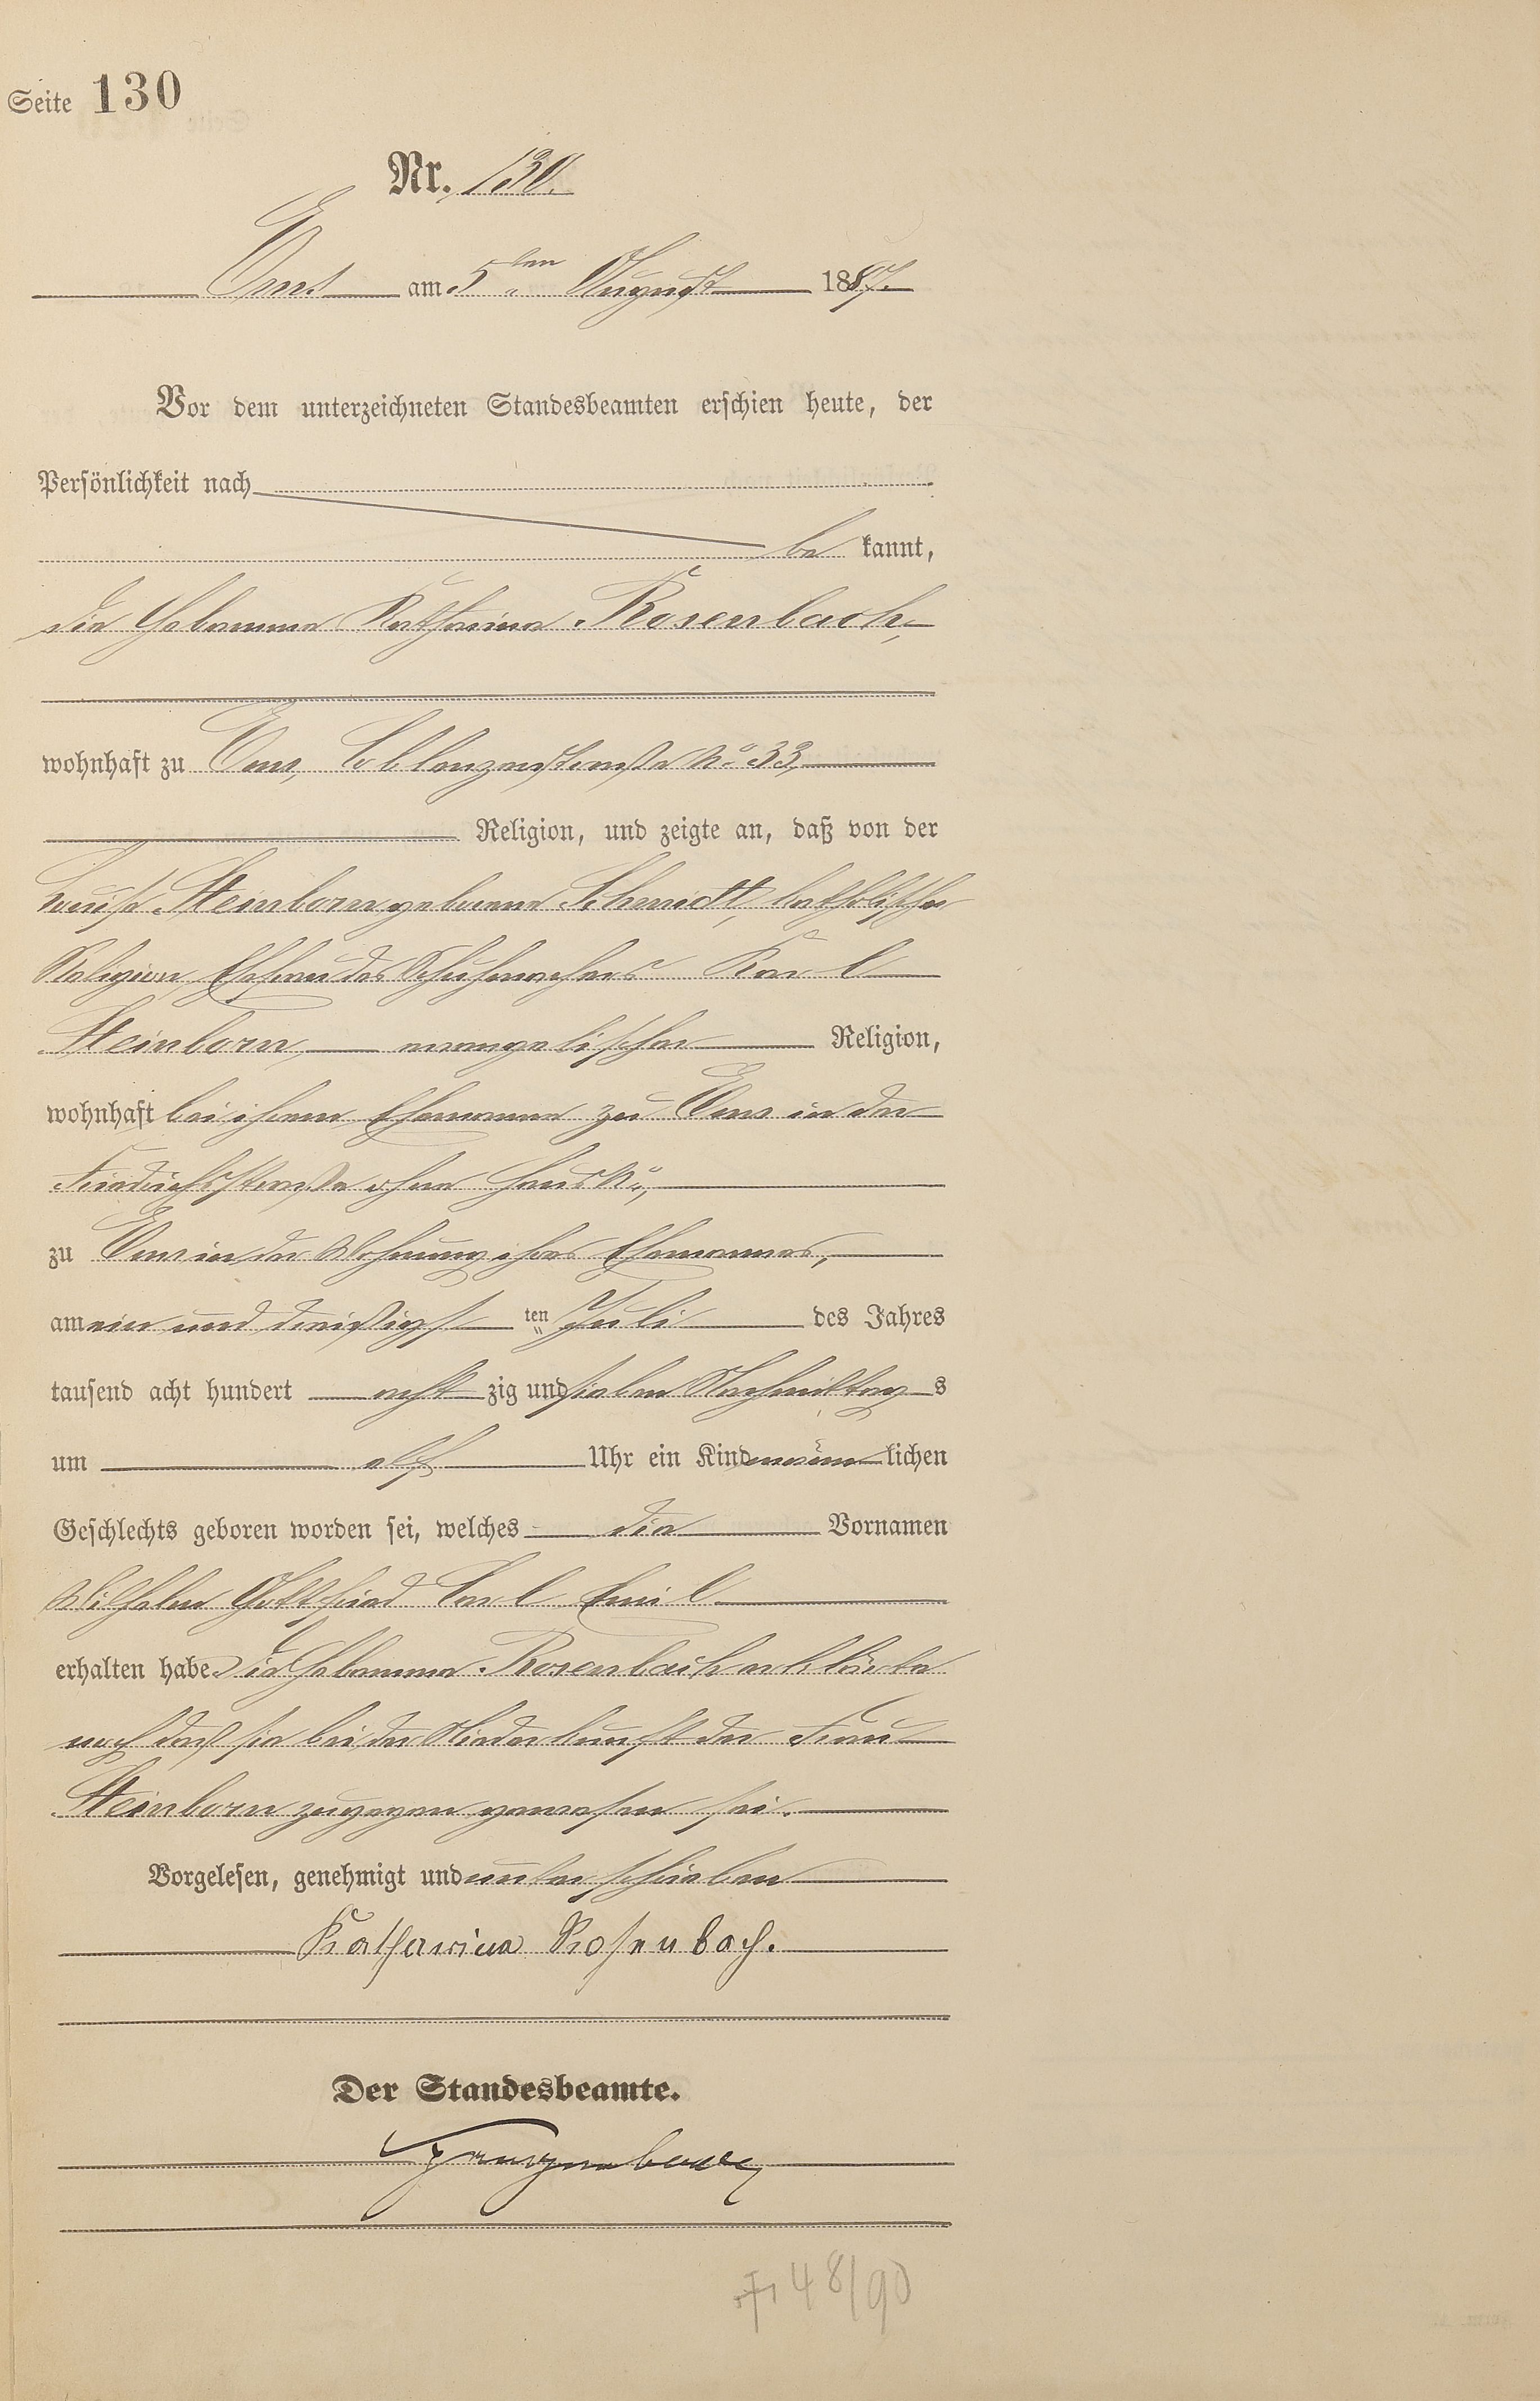 Seite 130
Nr. 130.
Ems am 5ten August 1887.
Vor dem unterzeichneten Standesbeamten erschien heute, der
Persönlichkeit nach
be kannt,
die Hebamme Katharina Rosenbach,
wohnhaft zu Ems, Coblenzerstraße No. 33,
Religion, und zeigte an, daß von der
Louise Steinborn geborene Schmidt, katholischer
Religion, Ehefrau des Schuhmachers Karl
Steinborn, evangelischer Religion,
wohnhaft bei ihrem Ehemanne zu Ems in der
Friedrichsstraße ohne Haus No,
zu Ems in der Wohnung ihres Ehemannes,
am ein und dreißigst ten Juli des Jahres
tausend acht hundert acht zig und sieben Nachmittag s
um elf Uhr ein Kind männ lichen
Geschlechts geboren worden sei, welches die Vornamen
Wilhelm Gottfried Carl Emil
erhalten habe. Die Hebamme Rosenbach erklärte
noch daß sie bei der Niederkunft der Frau
Steinborn zugegen gewesen sei.
Vorgelesen, genehmigt und unterschrieben
Katharina Rosenbach.
Der Standesbeamte.
† 48/90